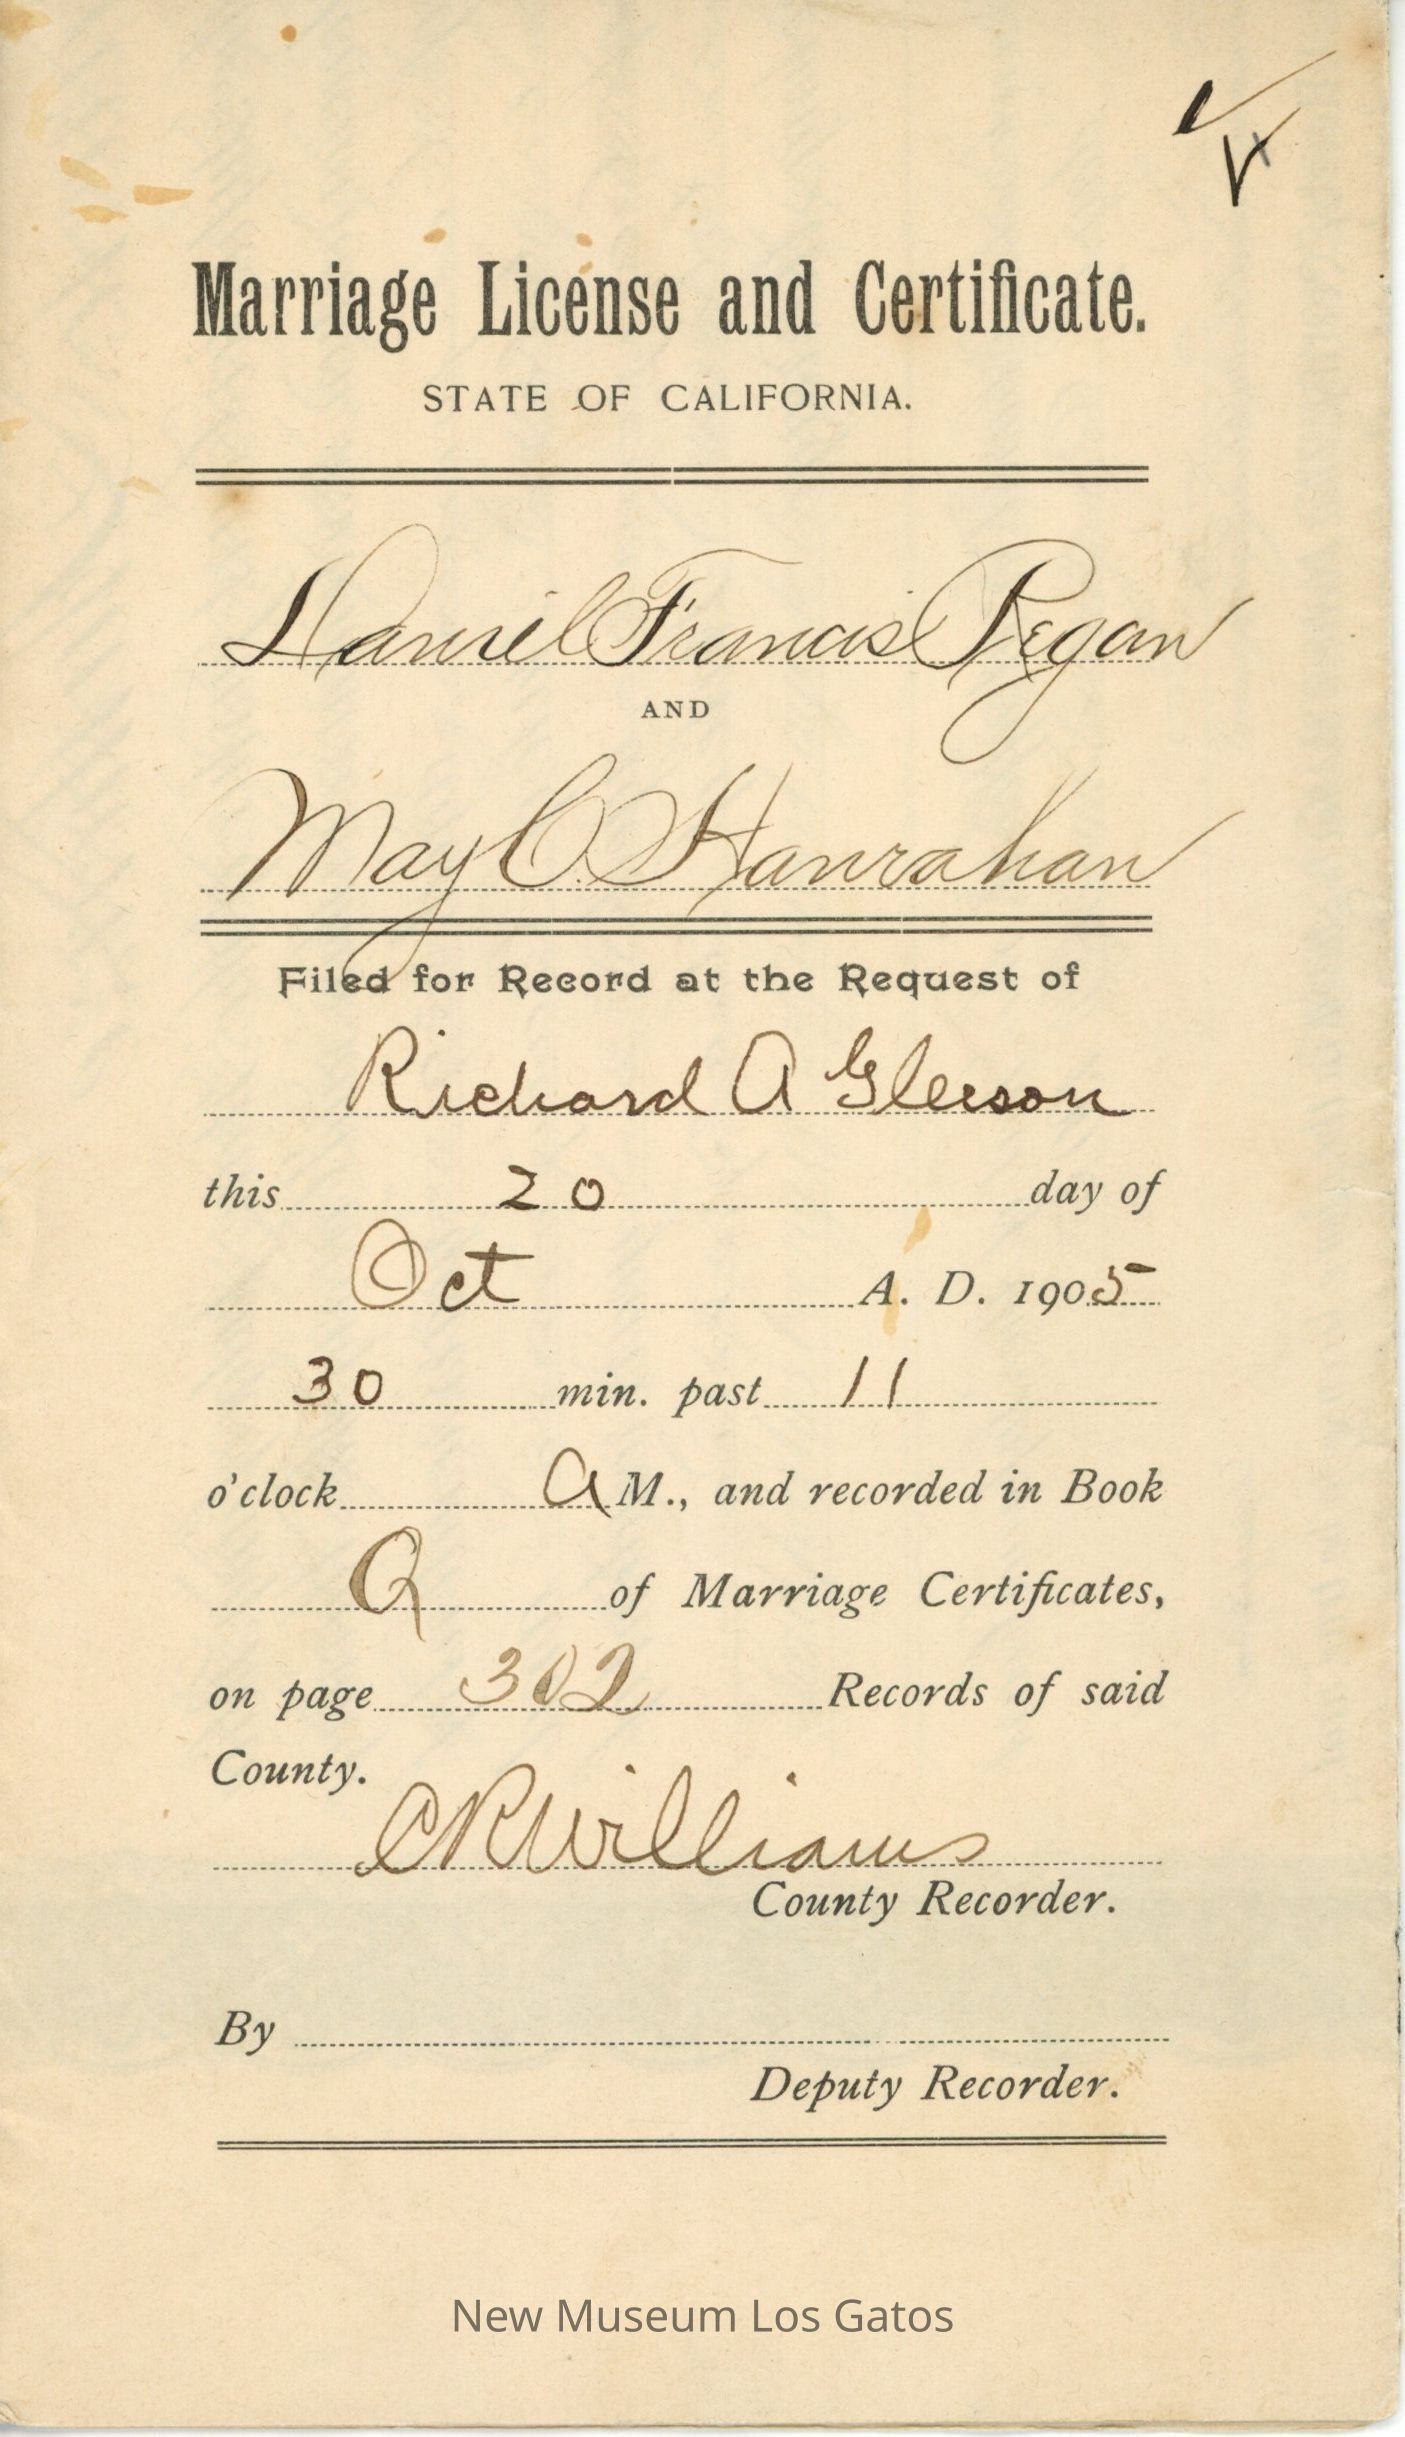 Marriage License and Certificate.
STATE OF CALIFORNIA.
Daniel Francis Regan
AND
May C. Hanrahan
Filed for Record at the Request of
Richard A Gleeson
this 20 day of
Oct A. D. 1905
30 min. past 11
o'clock A M., and recorded in Book
Q of Marriage Certificates,
on page 302 Records of said
County.
C R Williams
County Recorder.
By
Deputy Recorder.
New Museum Los Gatos